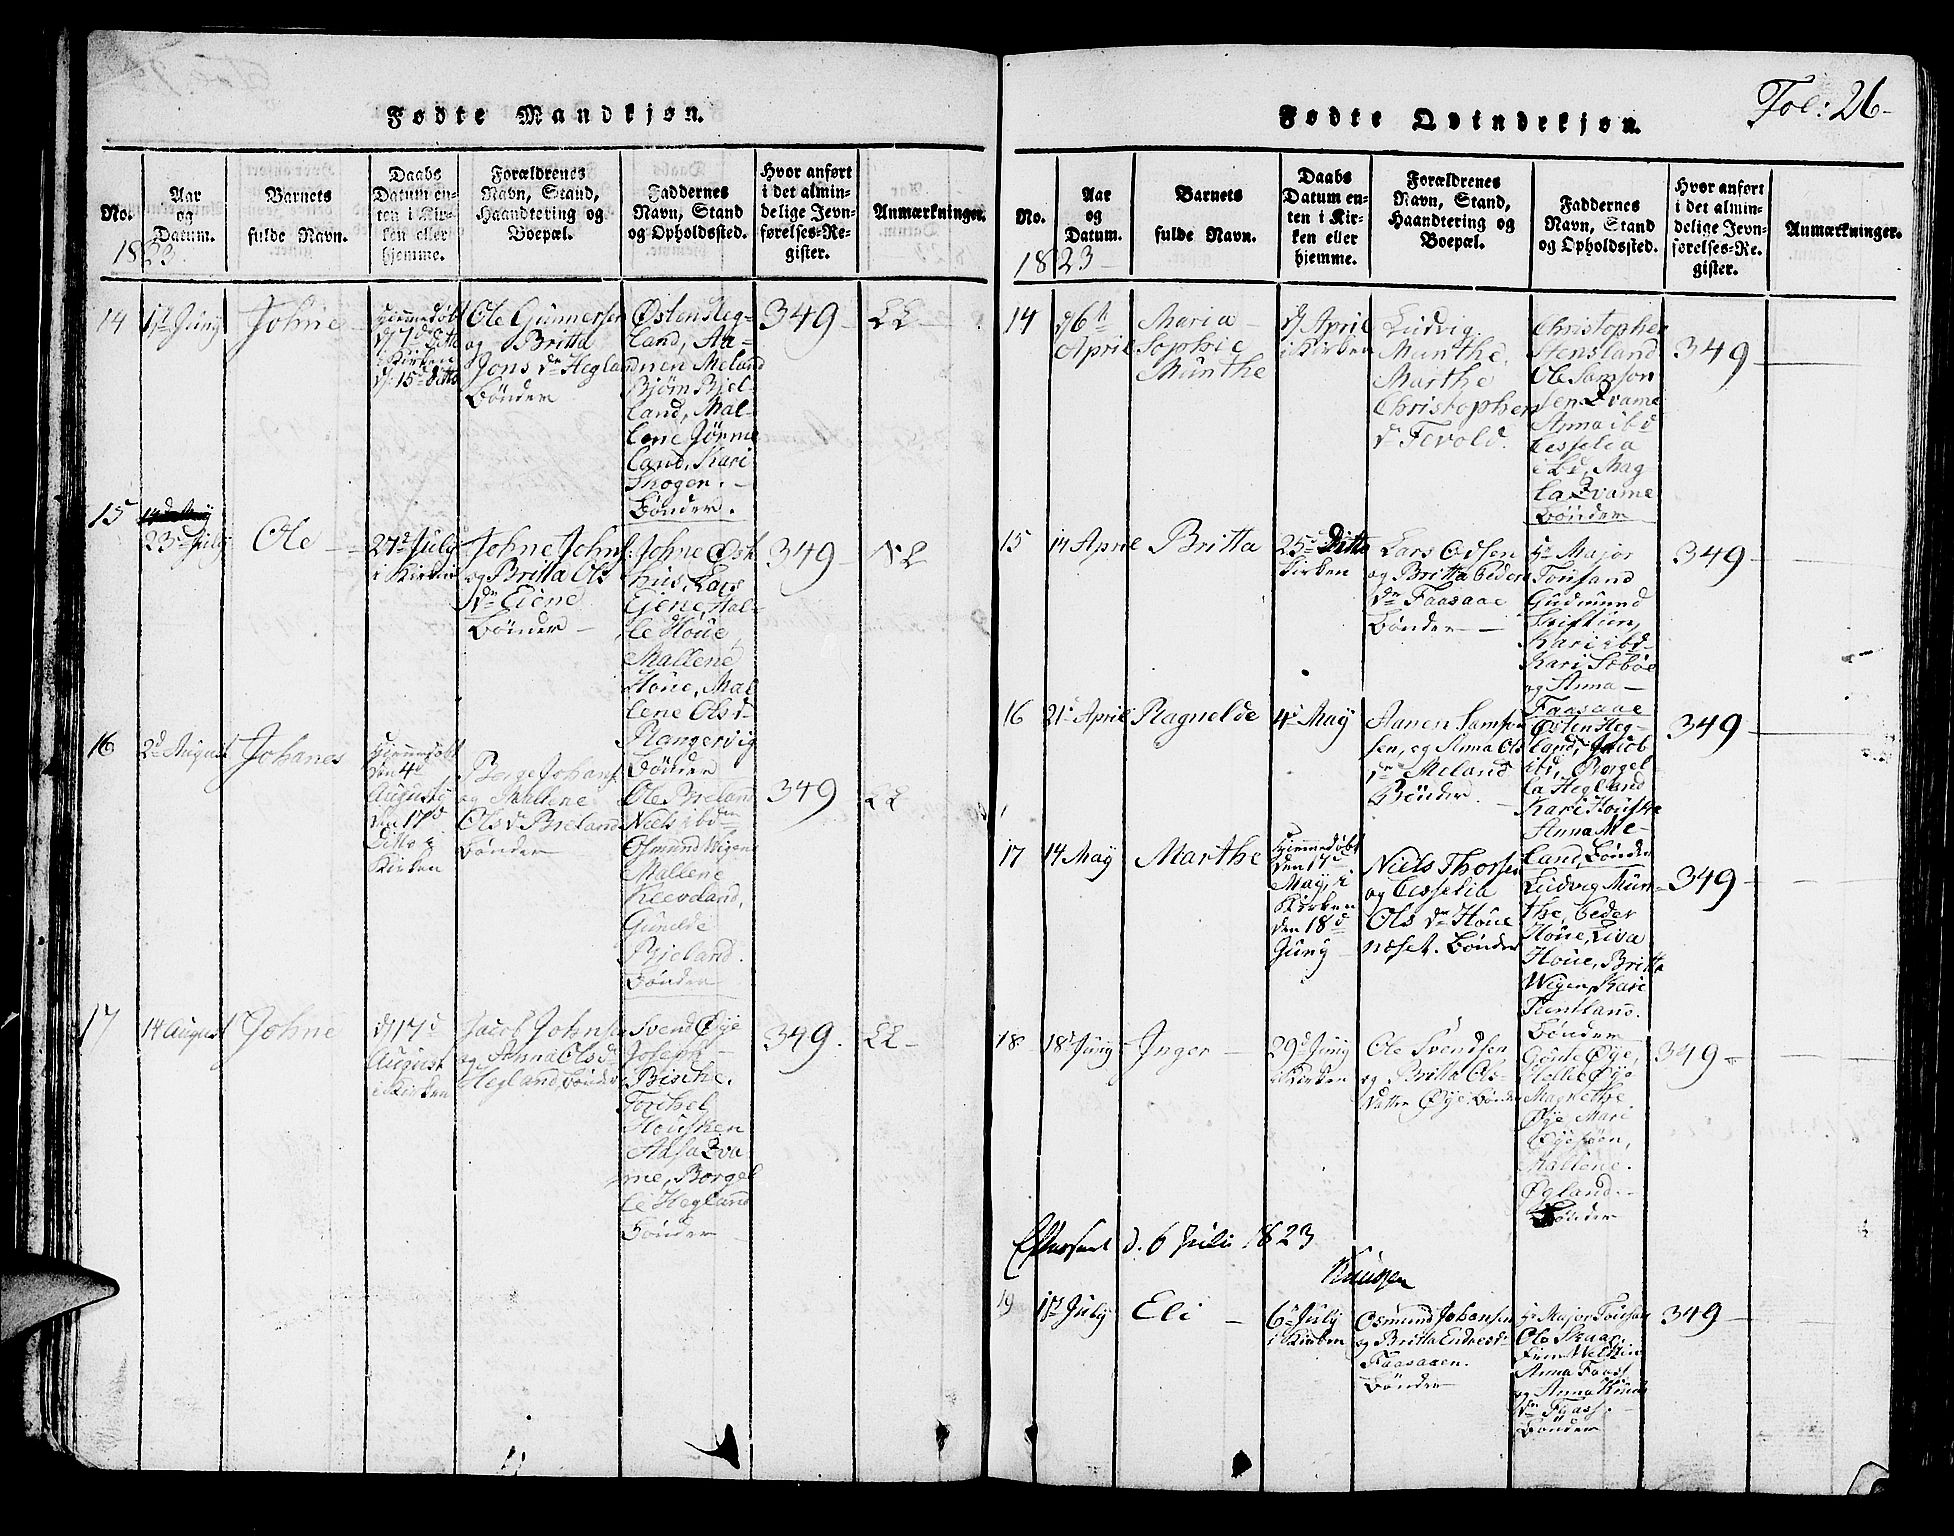 Fødte Mandkjøn.
No.
Aar
og
Datum.
1823.
Barnets
fulde Navn.
Daabs
Datum en-
ten i Kir-
ken eller
hjemme.
Forældrenes
Navn, Stand,
Haandtering og
Boepæl.
Faddernes
Navn, Stand
og Opholdssted.
Hvor anført
i det almin-
delige Jevn-
førelses-Re-
gister.
Anmærkninger.
14
1st Juny
Johne
Hjemmedøbt
d 7d ditto
i Kirken
d: 15d ditto
Ole Gunnersen
og Britta
Jons dr Hegland
Bønder
Østen Heg-
land, Aa-
nen Meland
Bjørn Bjel-
land, Mal-
lene Jørme
land, Kari
Skogen.
Bønder.
349
LL
15
23d July
Ole
27d July
i Kirken
Johne Johns
og Britta Ols
dr Eiene
Bønder
Johne Øst
hus Lars
Eiene, Hal-
le Houe
Mallene
Houe, Mal
lene Olsd
Rangervig
Bønder
349
NL
16
2d August
Johanes
Hjemmedøbt
den 4d
Augusty
den 17d
Ditto i
Kirken
Børge Johans
og Mallene
Ols dr Breland
Bønder
Ole Breland
Niels ibden
Osmund Wigen
Mallene
Kleevland,
Gunelde
Brieland.
Bønder
349
LL
17
14 August
Johne
d 17d
August
i Kirken
Jacob Johnsen
og Anna Ols d
Hegland, Bønder
Svend Øye
Joseph
Riske.
Torkel
Housken
Aasa Qva
me, Borgel
le Hegland
Bønder
349.
LL
Fødte Qvindekjøn.
Fol: 26
No.
Aar
og
Datum.
1823
Barnets
fulde Navn.
Daabs
Datum en-
ten i Kir-
ken eller
hjemme.
Forældrenes
Navn, Stand,
Haandtering og
Boepæl.
Faddernes
Navn, Stand
og Opholdssted.
Hvor anført
i det almin-
delige Jevn-
førelses-Re-
gister.
Anmærkninger.
14
April
Maria
Sophie
Munthe
April
i Kirken
Ludvig
Munthe.
Marthe
Christophers
dr Tevold.
Christopher
Stensland
Ole Samson
sen Qvame
Anna ibd
Cesselia
ibd, Mag
la Qvame
Bønder
349
15
14 April
Britta
25d Ditto
Kirken
Lars Odsen
og Britta Peders
dr Faasaae
Bønder
Hr Major
Tousand
Gudmund
Kari ibd
Kari
og Anna
Faasaae
349
16
21d April
Ragnelde
4d May
Aanen Samson
sen, og Anna Ols
dr Meland
Bønder.
Østen Heg-
land, Jacob
ibd, Borgel
la Hegland
Kari Houske
Anna Me-
land, Bønder
349
17
14 May
Marthe
Hjemmedøbt
den 17d
May, i
Kirken
den 18d
Juny
Niels Thorsen
og Cesselia
Ols dr Houe
næset. Bønder
Ludvig Mun-
the, Peder
Houe, Liva
Houe, Britta
Wigen, Kari
Tuntland.
Bønder
349
18
18d Juny
Inger
29d Juny
i Kirken
Ole Svendsen
og Britta Ols
datter Øye. Bønder
Gude Øye,
Helle Øye
Magnethe
Øye, Mari
Øyesøen,
Mallene.
Øgland.
Bønder
349
Efterseet d. 6 Juli 1823
Knudsen
19
1st July
Eli
6d July
i Kirken
Osmund Johansen
og Britta Endresd
Faasaaen.
Bønder
Hr Major Tousan
Ole Skaae,
Anna Faas
og Anna
dr Faas.
Bønder
349